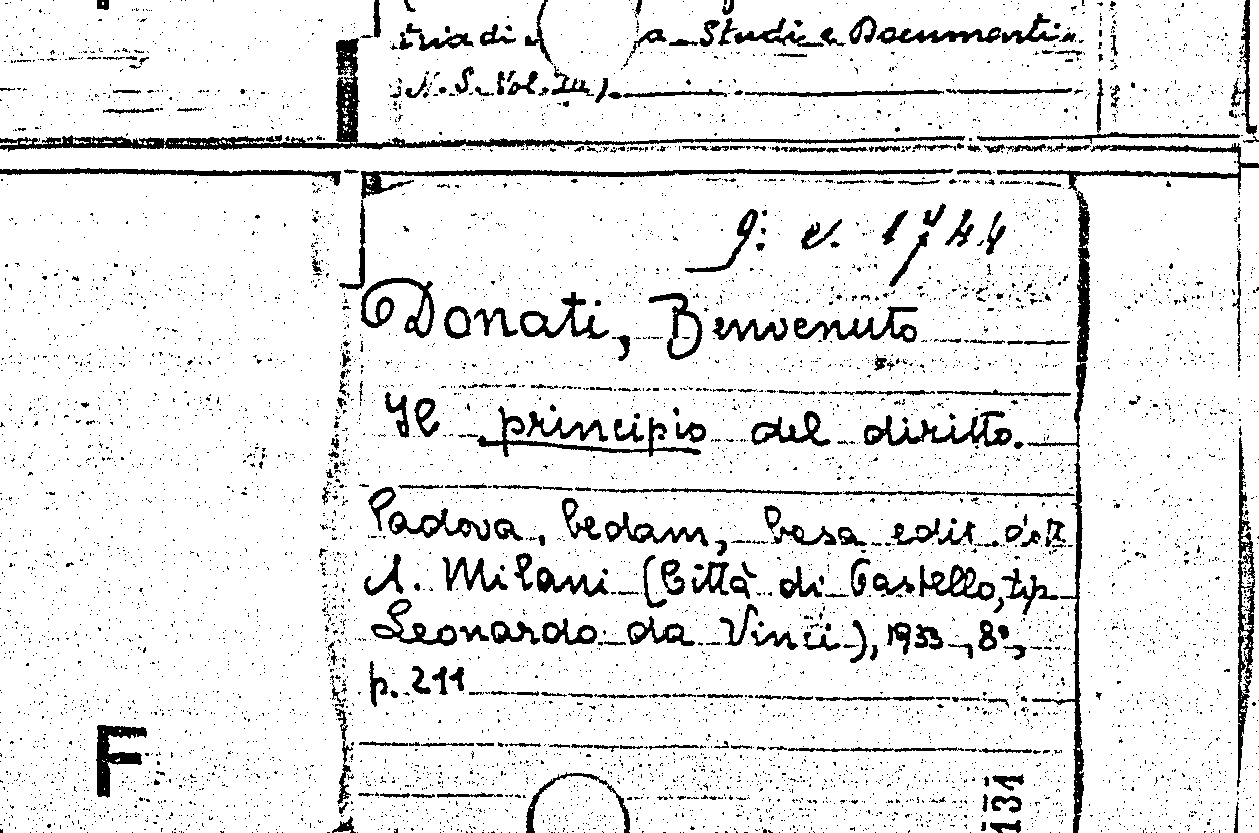 tria di a Studi e Documenti
N. S. Vol. III).
g: v. 1744
Donati, Benvenuto
Il principio del diritto.
Padova, Cedam, Casa edit. dott.
A. Milani (Città di Castello, tip.
Leonardo da Vinci), 1933, 8°,
p. 211
F
131